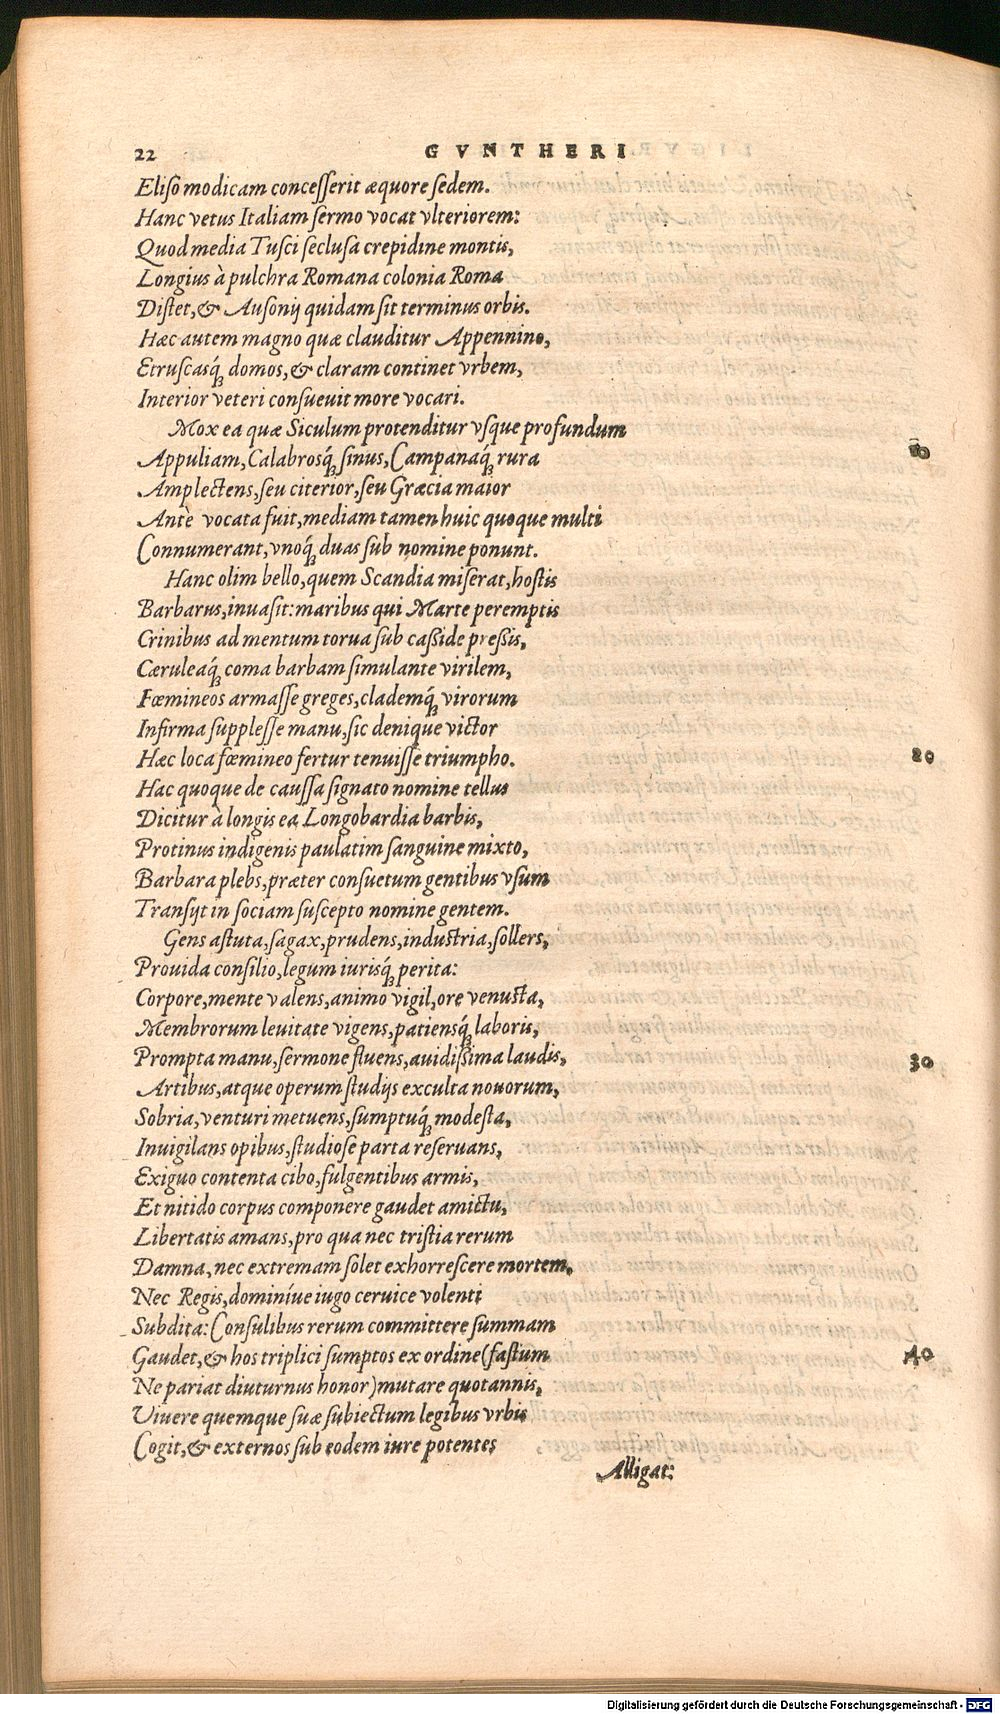 22 GVNTHERI
Eliſo modicam conceſſerit æquore ſedem.
Hanc vetus Italiam ſermo vocat vlteriorem:
Quod media Tuſci ſecluſa crepidine montis,
Longius à pulchra Romana colonia Roma
Diſtet, & Auſonij quidam ſit terminus orbis.
Hæc autem magno quæ clauditur Appennino,
Etruſcasq́; domos, & claram continet vrbem,
Interior veteri conſueuit more vocari.
Mox ea quæ Siculum protenditur vſque profundum
Appuliam, Calabrosq́; ſinus, Campanaq́; rura 10
Amplectens, ſeu citerior, ſeu Græcia maior
Antè vocata fuit, mediam tamen huic quoque multi
Connumerant, vnoq́; duas ſub nomine ponunt.
Hanc olim bello, quem Scandia miſerat, hoſtis
Barbarus, inuaſit: maribus qui Marte peremptis
Crinibus ad mentum torua ſub caßide preßis,
Cæruleaq́; coma barbam ſimulante virilem,
Fœmineos armaſſe greges, clademq́; virorum
Infirma ſuppleſſe manu, ſic denique victor
Hæc loca fœmineo fertur tenuiſſe triumpho. 20
Hac quoque de cauſſa ſignato nomine tellus
Dicitur à longis ea Longobardia barbis,
Protinus indigenis paulatim ſanguine mixto,
Barbara plebs, præter conſuetum gentibus vſum
Tranſijt in ſociam ſuſcepto nomine gentem.
Gens aſtuta, ſagax, prudens, induſtria, ſollers,
Prouida conſilio, legum iurisq́; perita:
Corpore, mente valens, animo vigil, ore venuſta,
Membrorum leuitate vigens, patiensq́; laboris,
Prompta manu, ſermone fluens, auidißima laudis, 30
Artibus, atque operum ſtudijs exculta nouorum,
Sobria, venturi metuens, ſumptuq́; modeſta,
Inuigilans opibus, ſtudioſe parta reſeruans,
Exiguo contenta cibo, fulgentibus armis,
Et nitido corpus componere gaudet amictu,
Libertatis amans, pro qua nec triſtia rerum
Damna, nec extremam ſolet exhorreſcere mortem,
Nec Regis, dominíue iugo ceruice volenti
Subdita: Conſulibus rerum committere ſummam
Gaudet, & hos triplici ſumptos ex ordine (faſtum 40
Ne pariat diuturnus honor) mutare quotannis,
Viuere quemque ſuæ ſubiectum legibus vrbis
Cogit, & externos ſub eodem iure potentes
Alligat:
Digitalisierung gefördert durch die Deutsche Forschungsgemeinschaft - DFG